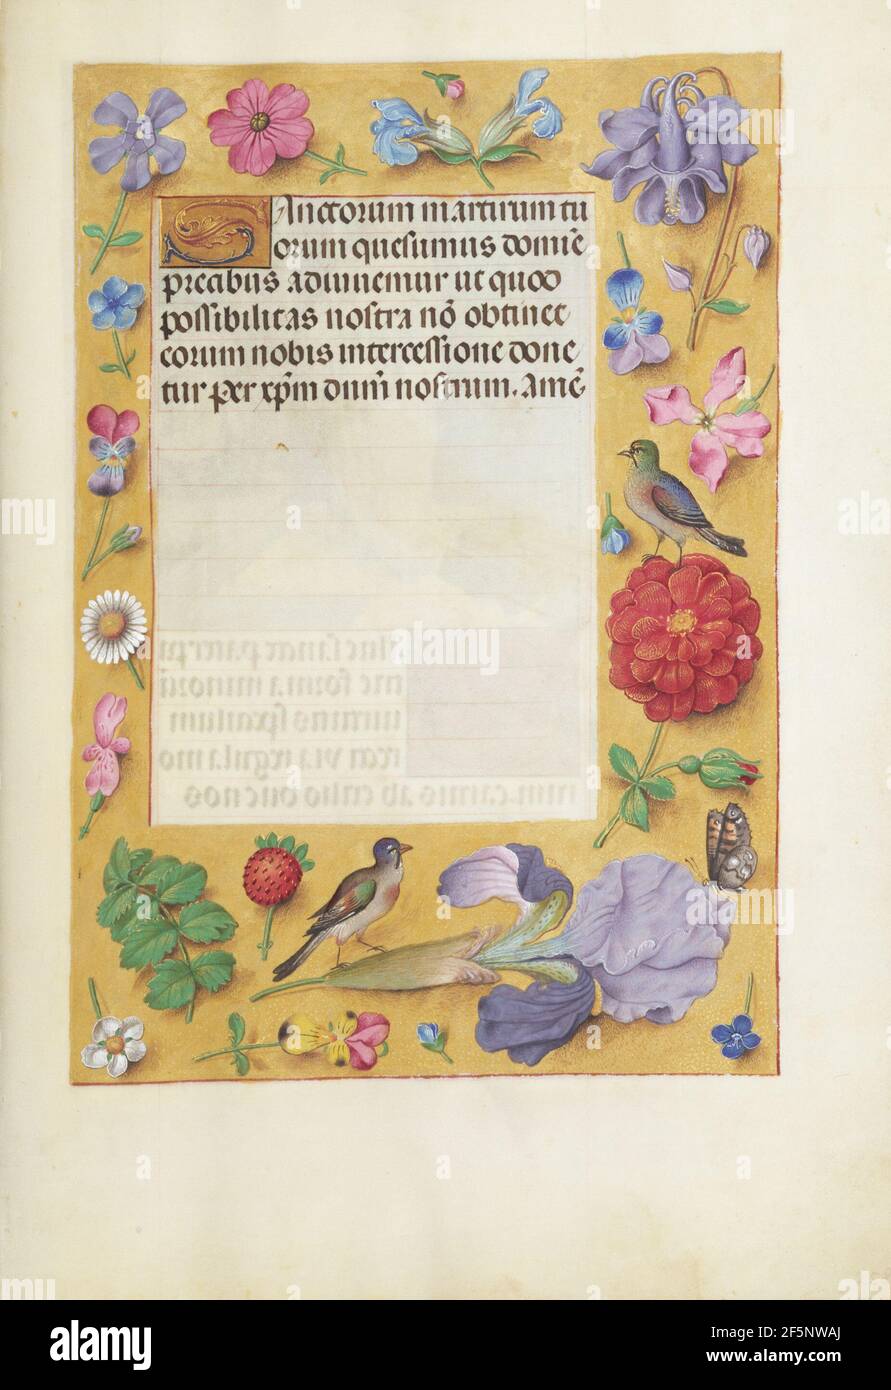 Sanctorum martirum tu
orum quesumus domīe
precibus adiuuemur ut quod
possibilitas nostra nō obtinet
eorum nobis intercessione done
tur per xp̄m dnū̄m nostrum. Amē
alamy
Image ID: 2F5NWAJ
www.alamy.com